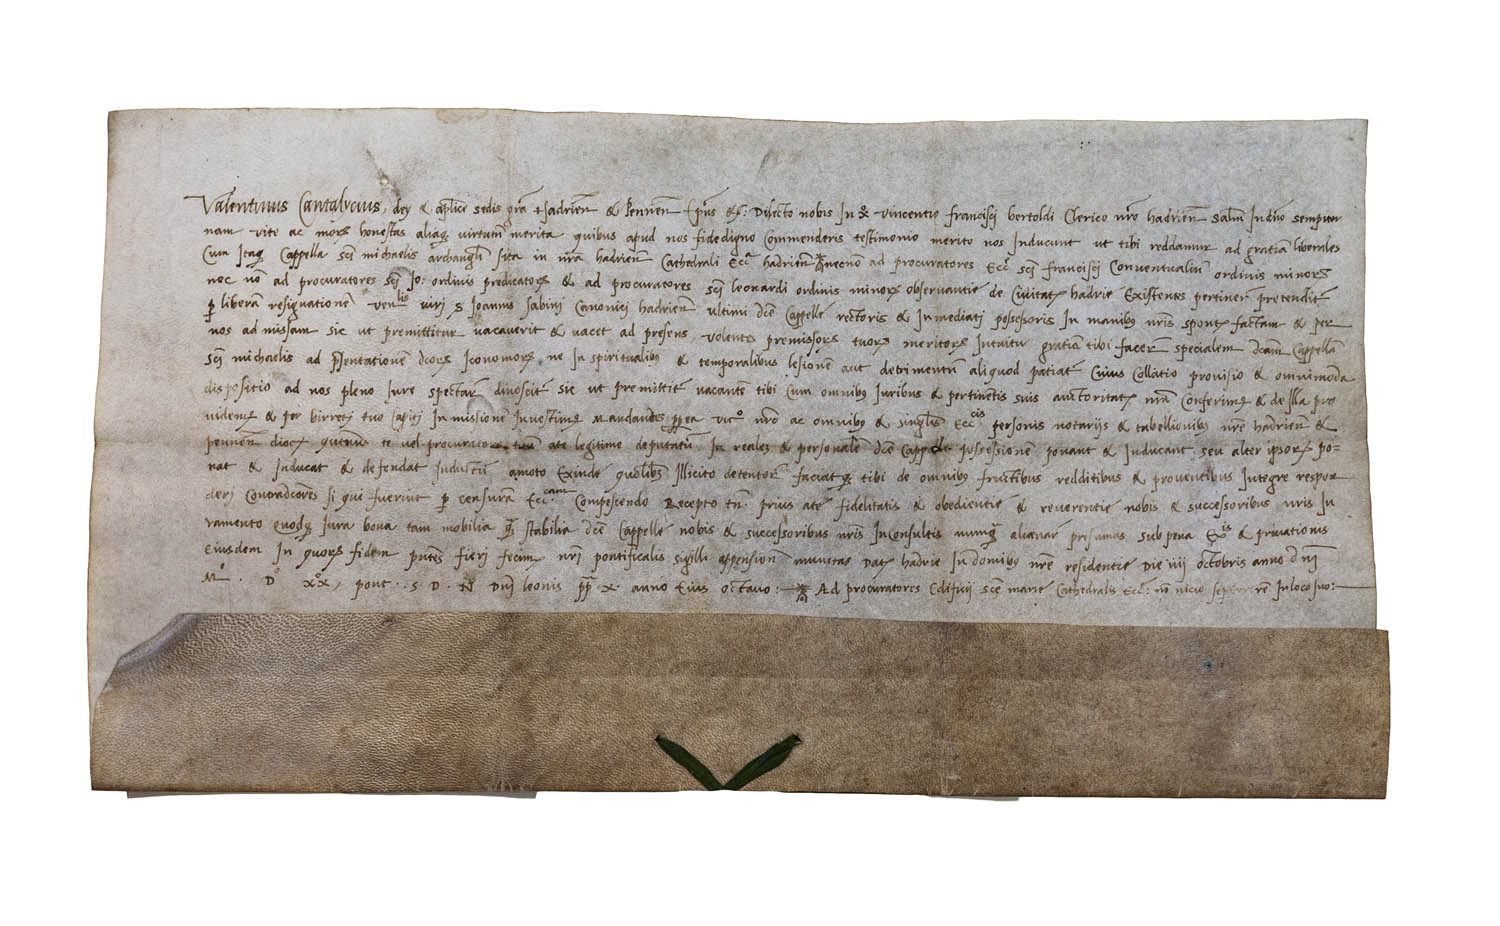 Valentinus Cantalycius, dej & aplice sedis gra & hadrien & Pennen Epus &c: Dilecto nobis In xo Vincentio francisci bertoldi Clerico nro hadrien Salm In dno sempitern
nam vite ac mors honestas aliaq virtutum merita quibus apud nos fidedigno Commenderis testimonio merito nos Inducunt ut tibi reddamur ad gratiam liberales
Cum Itaq Cappella sci michaelis archangli sita in nra hadrien Cathedrali Ecca hadrien necnon ad procuratores Ecce sci francisci Conventualium ordinis minors
nec no ad procuratores sci Jo: ordinis predicators & ad procuratores sci leonardi ordinis minors observantie de Civitate hadrie Existentes pertiner pretendit
p liberam resignatione venlis viri s Joannis Sabini Canonici hadrien ultimi dce Cappelle rectoris & Inmediati possessoris In manibus nris sponte factam & per
nos admissam sic ut premittitur vacaverit & vacet ad presens, volentes premissors tuors meritors Intuitu gratia tibi facere specialem dcam Cappella
sci michaelis ad psentatione dcors Iconomors ne In spiritualibus & temporalibus lesione aut detrimentu aliquod patiat Cuius Collatio provisio & omnimoda
dispositio ad nos pleno Iure spectar dinoscit sic ut premittit vacante tibi Cum omnibus Iuribus & pertinetis suis auctoritate nra Conferimus & de Illa pro
videmus & per birreti tuo capiti Inmissione Investimus Mandantes pptea vico nro ac omnibus & singulis Eccis personis notarijs & tabellionibus nre hadrien &
pennen dioc quatenus te vel procurator tuum ate legitime deputatu In reales & personale dce Cappelle possessione ponant & Inducant seu alter ipsors po=
nat & Inducat & defendat Inductu amoto Exinde quolibet Illicito detentore faciatq tibi de omnibus fructibus redditibus & proventibus Integre respon
deri Contradcores si qui fuerint p censura Eccam Compescendo Recepto tn prius ate fidelitatis & obedientie & reverentie nobis & successoribus nris Iu
ramento Quodq Iura bona tam mobilia q stabilia dce Cappelle nobis & successoribus nris Inconsultis nunq alienar presumas sub pena Exois & privationis
Eiusdem In quors fidem pntes fieri fecim nri pontificalis sigilli appension munitas Dat hadrie In domibus nre residentie Die iiij octobris anno dnj
Mo. Do xxo, pont. S. D. N Dnj leonis pp x. anno Eius octavo: Ad procuratores Edificij sce marie Cathedralis Ecce: In loco suo: